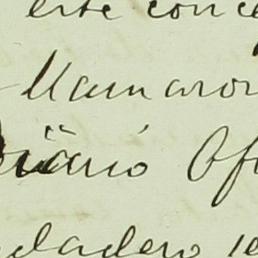 este conce
Mamaron
Diário Of
dadero